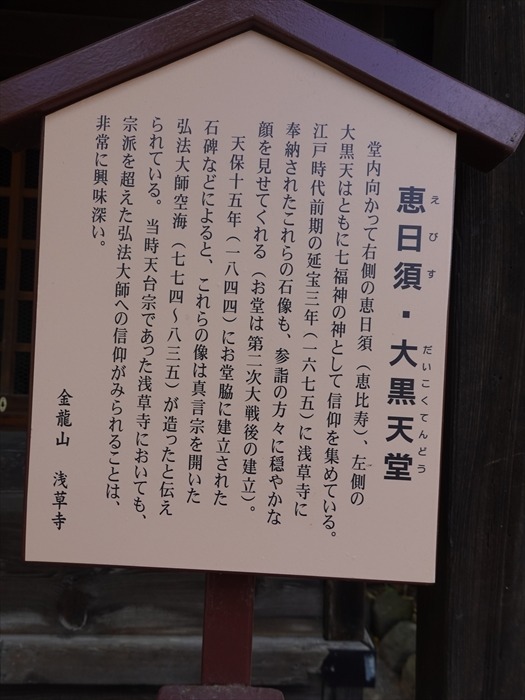 恵日須・大黒天堂
えびす
だいこくてんどう
堂内向かって右側の恵日須（恵比寿）、左側の
大黒天はともに七福神の神として信仰を集めている。
江戸時代前期の延宝三年（一六七五）に浅草寺に
奉納されたこれらの石像も、参詣の方々に穏やかな
顔を見せてくれる（お堂は第二次大戦後の建立）。
天保十五年（一八四四）にお堂脇に建立された
石碑などによると、これらの像は真言宗を開いた
弘法大師空海（七七四〜八三五）が造ったと伝え
られている。当時天台宗であった浅草寺においても、
宗派を超えた弘法大師への信仰がみられることは、
非常に興味深い。
金龍山　浅草寺